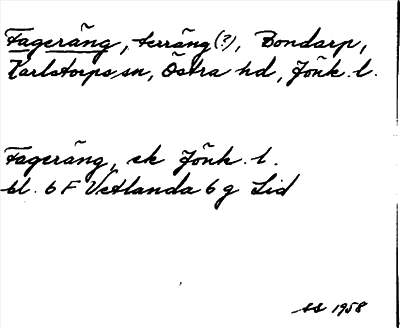 Fageräng, terräng(?), Bondarp,
Karlstorps sn, Östra hd, Jönk. l.
Fageräng, ek Jönk. l.
bl. 6 F Vetlanda 6 g Lid
SS 1958